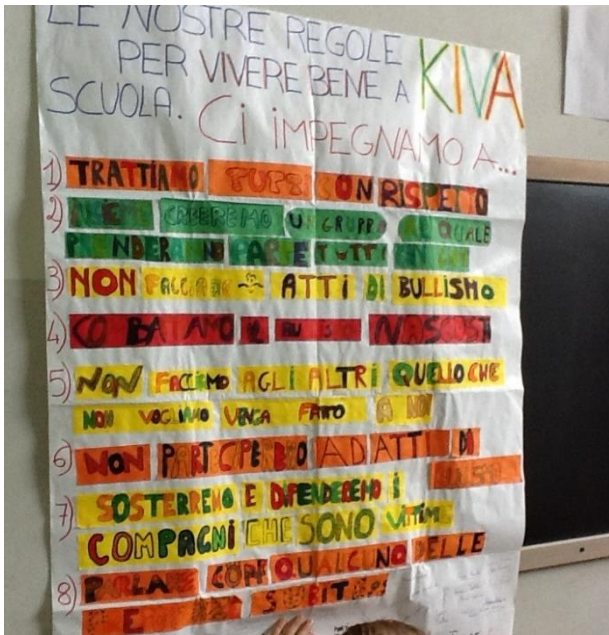 LE NOSTRE REGOLE
PER VIVERE BENE A KIVA
SCUOLA.
Ci iMPEGNAMO A...
1) TRATTIAMO TUTTI CON RISPETTO
2) INSIEME CREEREMO UN GRUPPO AL QUALE
PRENDERANNO PARTE TUTTI
3) NON FACCIAMO ATTI DI BULLISMO
4) NASCOSTI
5) NON FACCIAMO AGLI ALTRI QUELLO CHE
NON VOGLIAMO VENGA FATTO A NOI
6) NON PARTECIPEREMO AD ATTI DI
7) SOSTERREMO E DIFENDEREMO I
COMPAGNI CHE SONO VITTIME
8) PARLARE CON QUALCUNO DELLE
E SUBITO